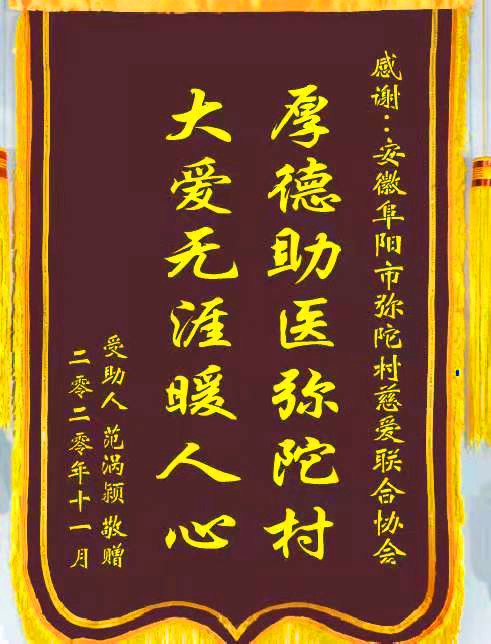 感谢：安徽阜阳市弥陀村慈爱联合协会
厚德助医弥陀村
大爱无涯暖人心
受助人 范涡颍 敬赠
二零二零年十一月